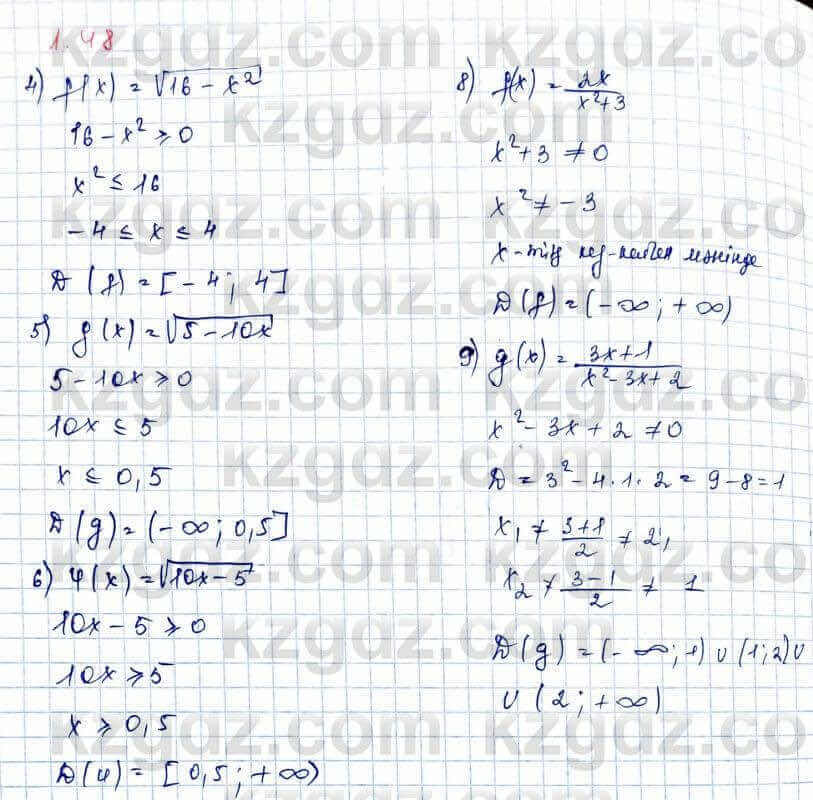 1.48
4) f(x) = √16 - x²
16 - x² ≥ 0
x² ≤ 16
-4 ≤ x ≤ 4
D(f) = [-4; 4]
5) g(x) = √5 - 10x
5 - 10x ≥ 0
10x ≤ 5
x ≤ 0,5
D(g) = (-∞; 0,5]
6) φ(x) = √10x - 5
10x - 5 ≥ 0
10x ≥ 5
x ≥ 0,5
D(φ) = [0,5; +∞)
8) f(x) = 2x / x² + 3
x² + 3 ≠ 0
x² ≠ -3
x - тің кез-келген мәнінде
D(f) = (-∞; +∞)
9) g(x) = 3x + 1 / x² - 3x + 2
x² - 3x + 2 ≠ 0
D = 3² - 4·1·2 = 9 - 8 = 1
x₁ ≠ 3+1 / 2 ≠ 2,
x₂ ≠ 3-1 / 2 ≠ 1
D(g) = (-∞; 1) ∪ (1; 2) ∪
∪ (2; +∞)
kzgdz.com